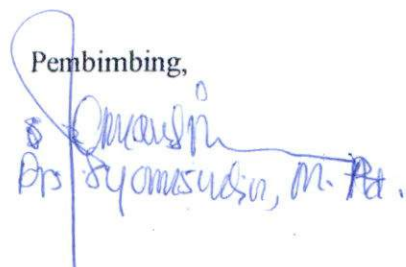 Pembimbing,
Drs Syamsudin, M. Pd.